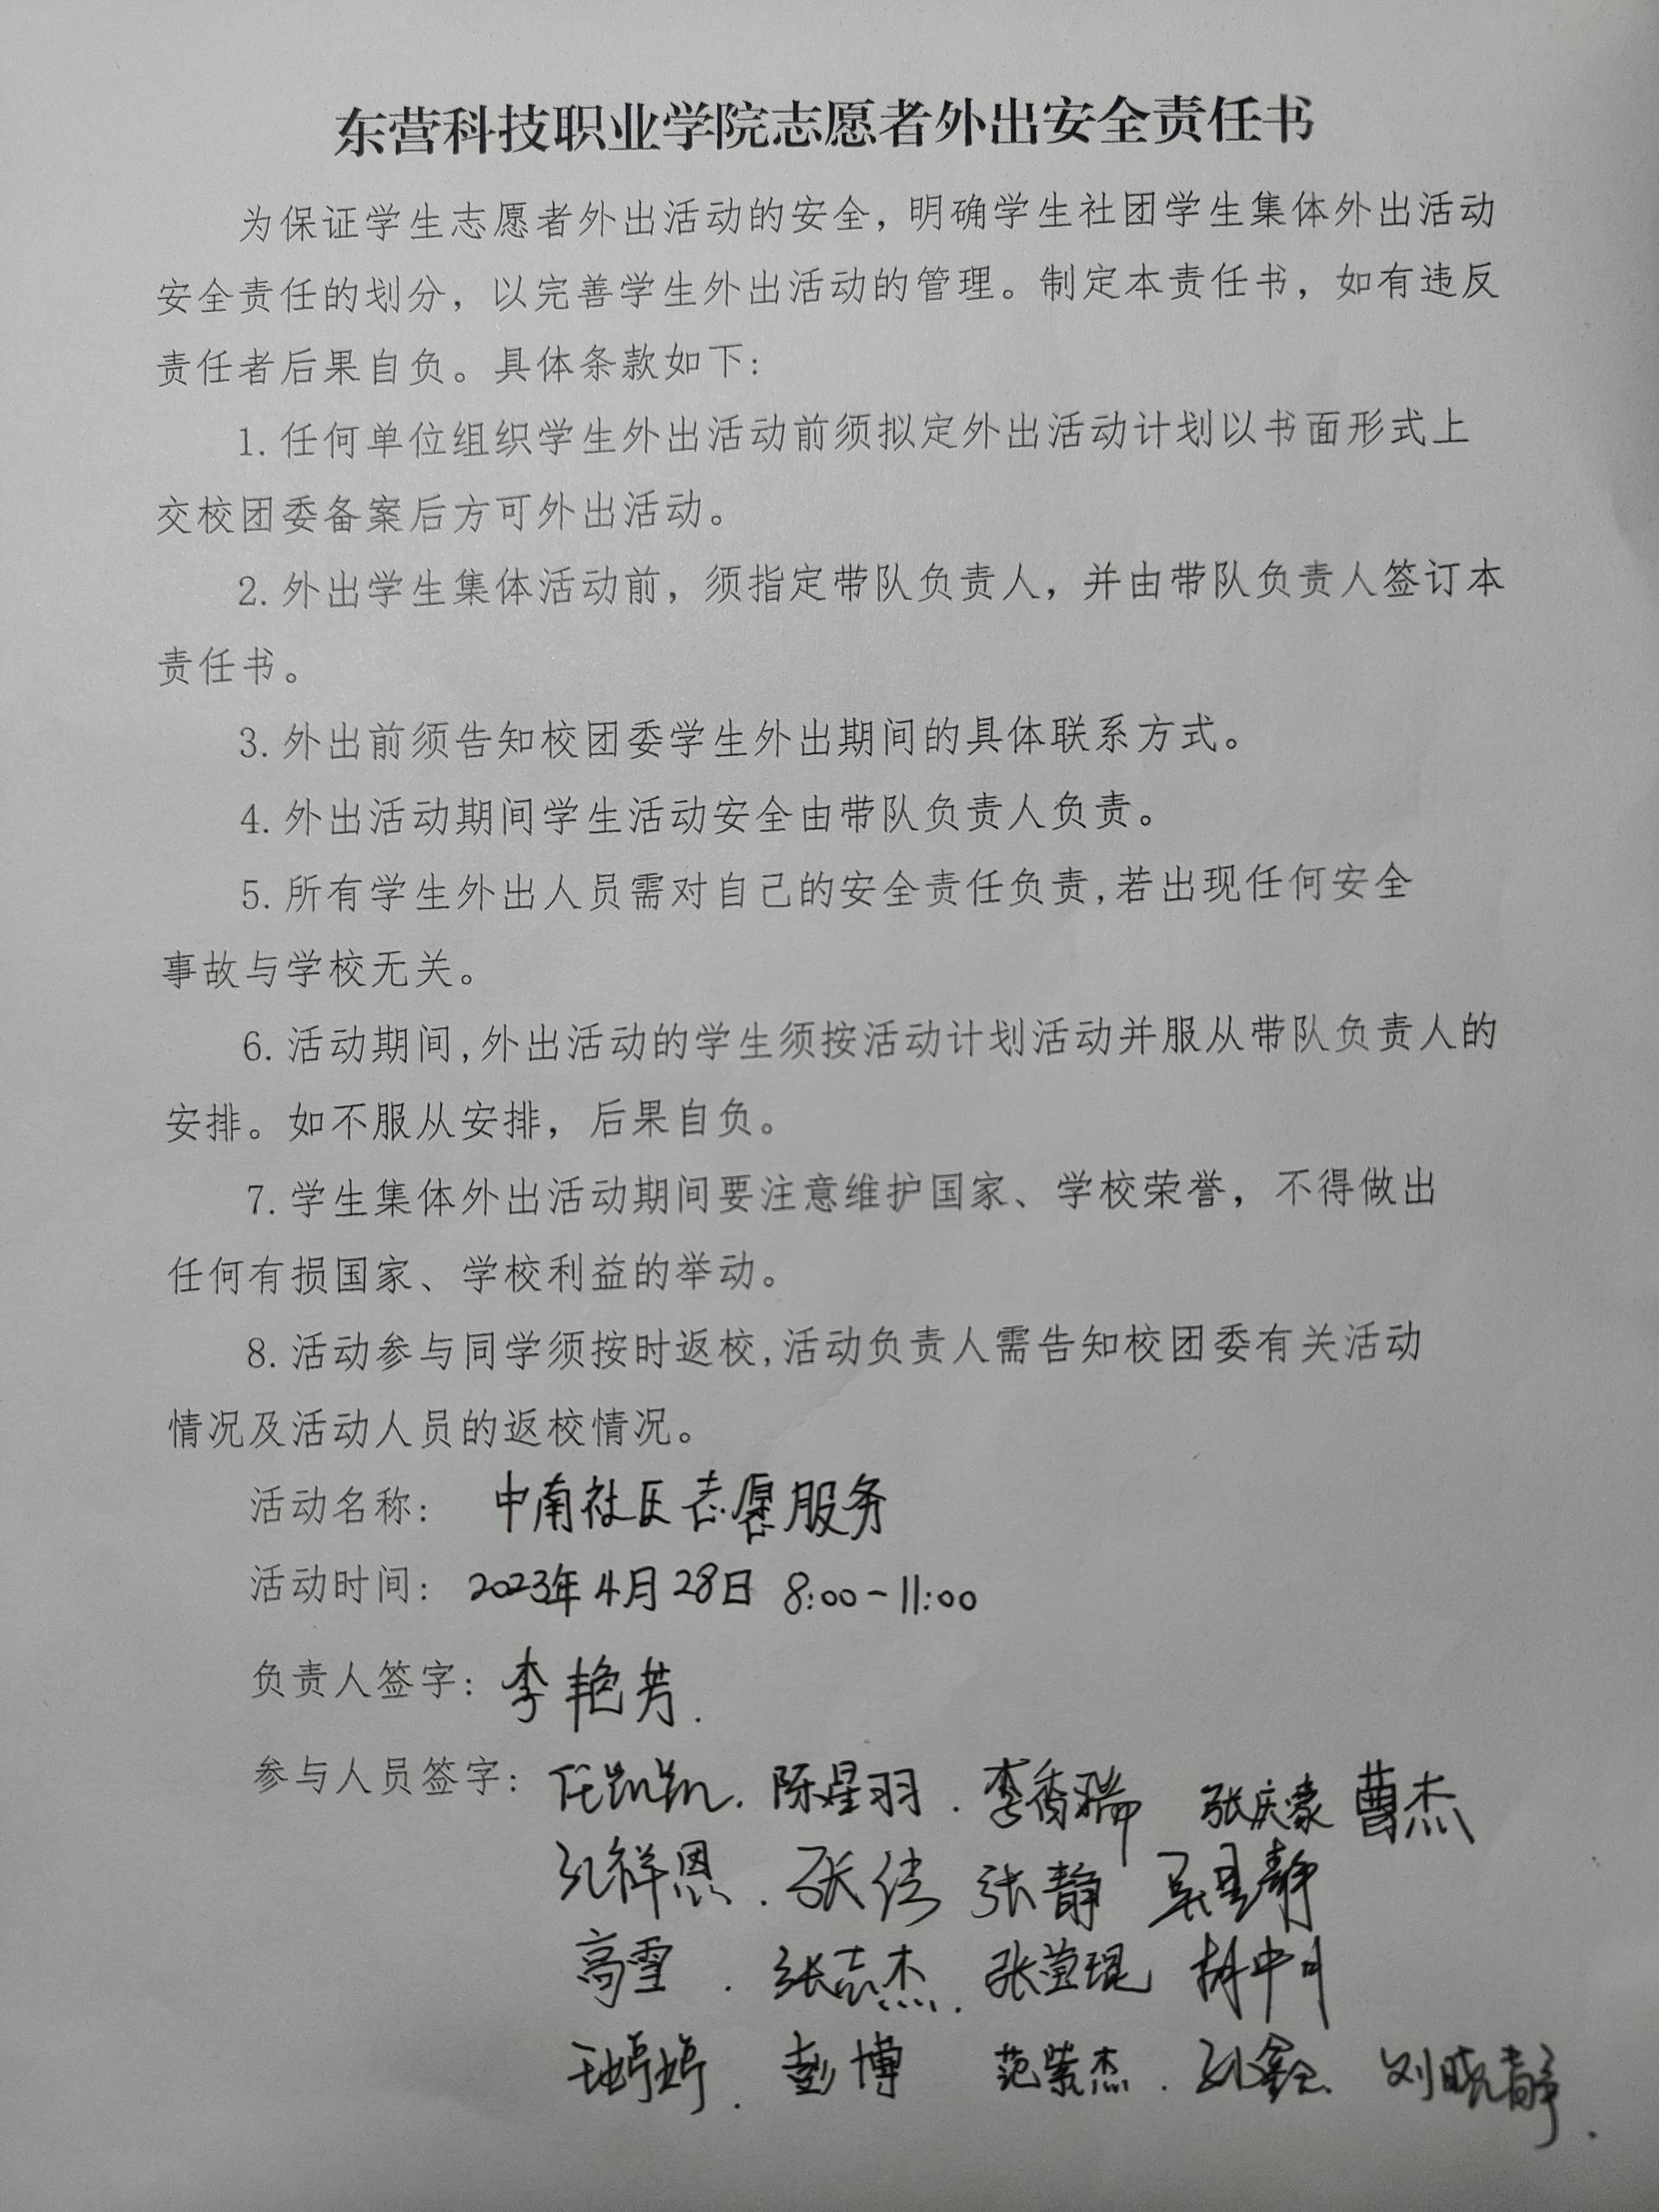 东营科技职业学院志愿者外出安全责任书
为保证学生志愿者外出活动的安全，明确学生社团学生集体外出活动
安全责任的划分，以完善学生外出活动的管理。制定本责任书，如有违反
责任者后果自负。具体条款如下：
1.任何单位组织学生外出活动前须拟定外出活动计划以书面形式上
交校团委备案后方可外出活动。
2.外出学生集体活动前，须指定带队负责人，并由带队负责人签订本
责任书。
3.外出前须告知校团委学生外出期间的具体联系方式。
4.外出活动期间学生活动安全由带队负责人负责。
5.所有学生外出人员需对自己的安全责任负责,若出现任何安全
事故与学校无关。
6.活动期间,外出活动的学生须按活动计划活动并服从带队负责人的
安排。如不服从安排，后果自负。
7.学生集体外出活动期间要注意维护国家、学校荣誉，不得做出
任何有损国家、学校利益的举动。
8.活动参与同学须按时返校,活动负责人需告知校团委有关活动
情况及活动人员的返校情况。
活动名称：中南社区志愿服务
活动时间：2023年4月28日 8:00-11:00
负责人签字：李艳芳.
参与人员签字：任凯凯. 陈星羽. 李香瑞 张庆豪 曹杰
孔祥恩. 张佳 张静 吴星静
高雪. 张志杰. 张萱琨
王婷婷. 彭博 范紫杰. 刘晓静.